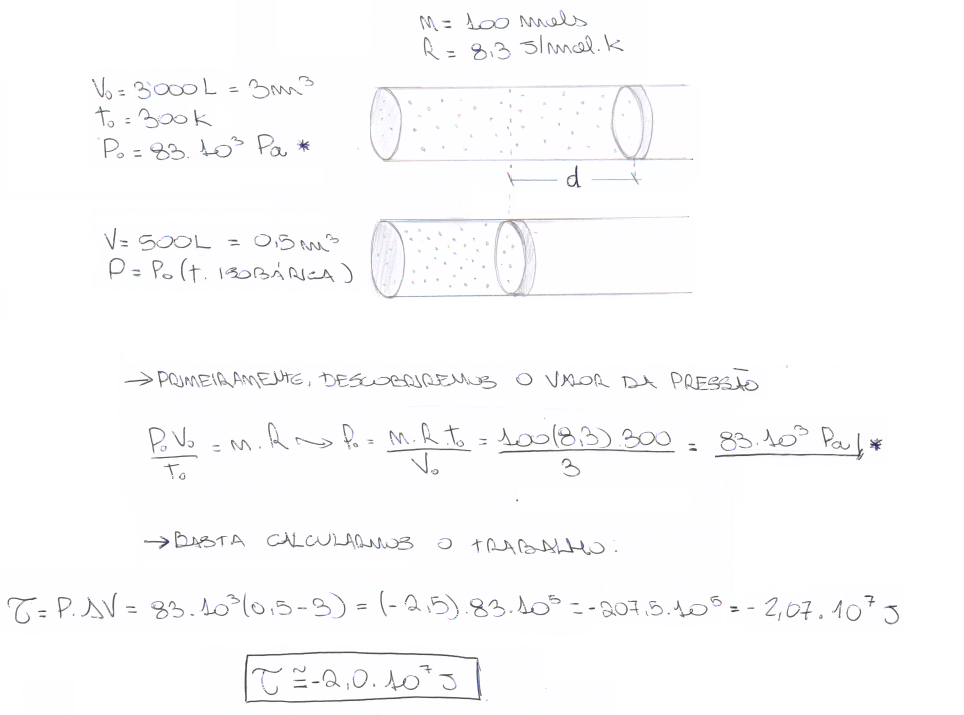 M = 100 mols
R = 8,3 J/mol.k
V₀ = 3000L = 3m³
t₀ = 300k
P₀ = 83.10³ Pa *
d
V = 500L = 0,5m³
P = P₀ (t. ISOBÁRICA)
→ PRIMEIRAMENTE, DESCOBRIREMOS O VALOR DA PRESSÃO
P₀V₀/T₀ = m.R ⇝ P₀ = m.R.t₀/V₀ = 100(8,3).300/3 = 83.10³ Pa *
→ BASTA CALCULARMOS O TRABALHO:
τ = P.ΔV = 83.10³(0,5-3) = (-2,5).83.10⁵ = -207,5.10⁵ = -2,07.10⁷ J
τ ≅ -2,0.10⁷ J